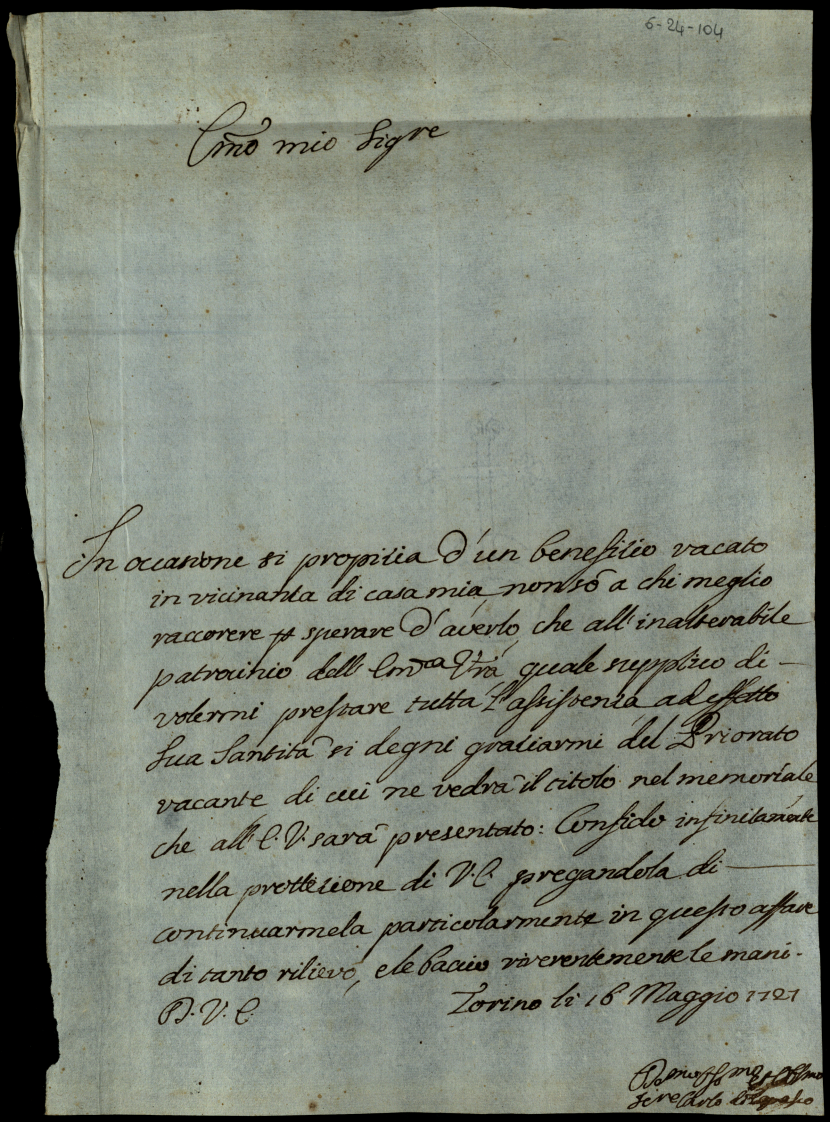 6-24-104
Em̃o mio Sigre
In occasione si propitia d'un benefitio vacato
in vicinanza di casa mia, non sò a chi meglio
raccorere p sperare d'averlo, che all'inalterabile
patrocinio dell'Em̃za Vrã quale supplico di
volermi prestare tutta l'assistenza ad effetto
Sua Santità si degni gratiarmi del Priorato
vacante di cui ne vedrà il titolo nel memoriale
che all'E.V. sarà presentato: Confido infinitamente
nella prottetione di V.E. pregandola di
continuarmela particolarmente in questo affare
di tanto rilievo, e le baccio riverentemente le mani.
D.V.E. Torino li 16 Maggio 1727
Carlo